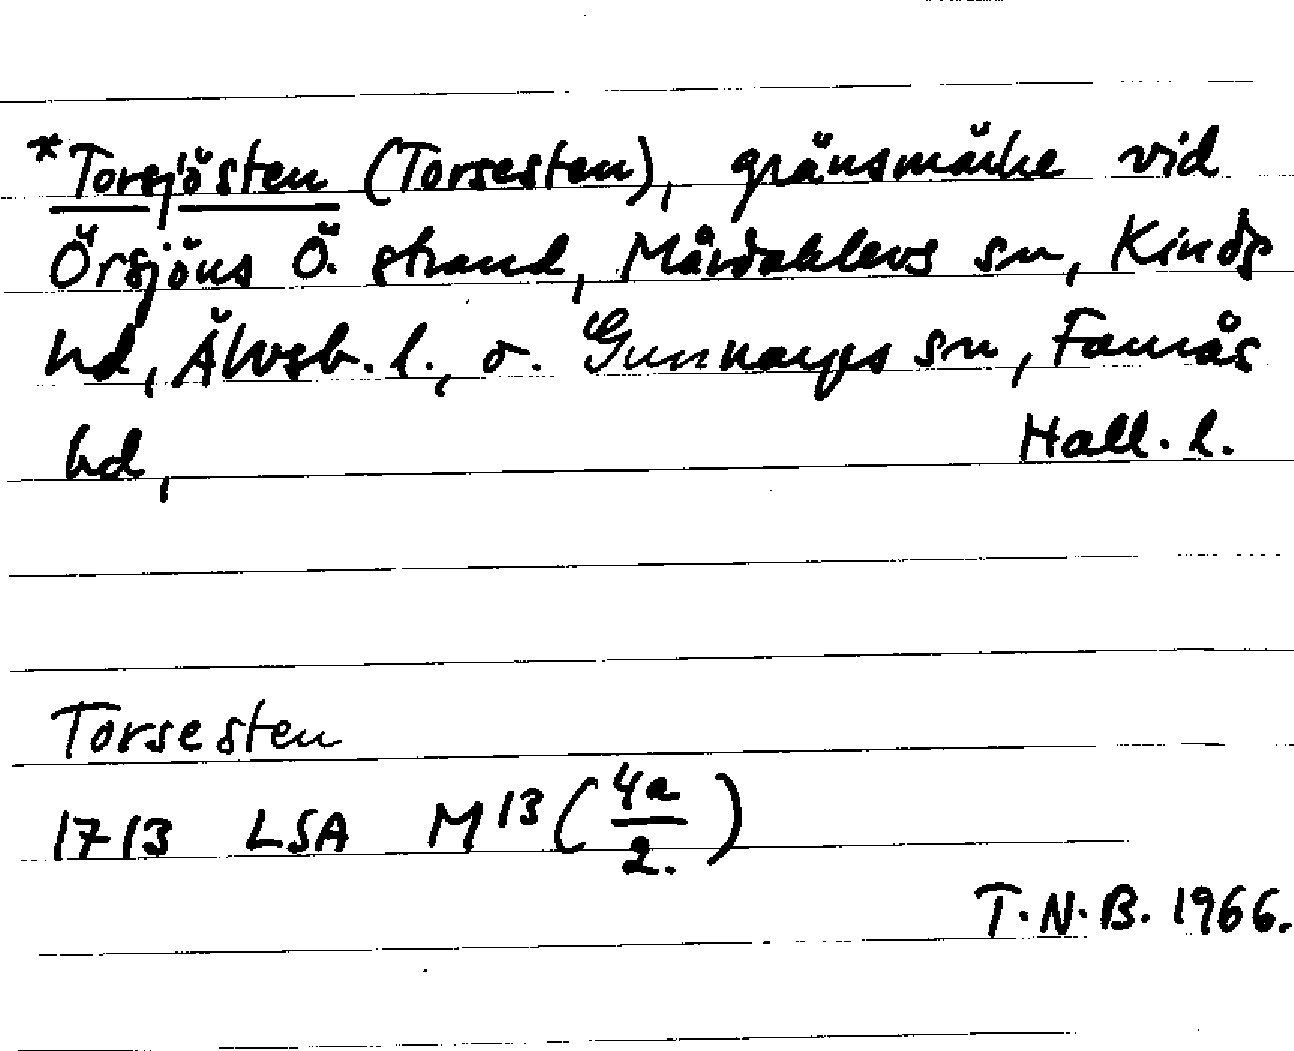 *Torsjösten (Torsesten), gränsmärke vid
Örsjöns Ö. strand, Mårdaklevs sn, Kinds
hd, Älvsb. l., o. Gunnarps sn, Faurås
hd, Hall. l.
Torsesten
1713 LSA M13 (4a/2.)
T.N.B. 1966.